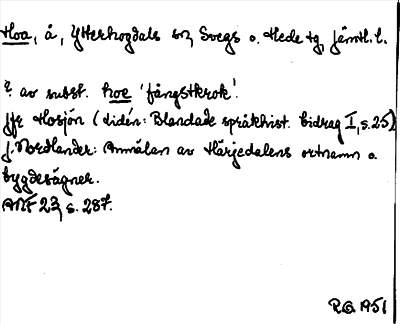 Hoa, å, Ytterhogdals sn, Svegs o. Hede tg, Jämtl. l.
? av subst. hoe 'fångstkrok'.
Jfr Hosjön (Lidén: Blandade språkhist. bidrag I, s. 25)
J. Nordlander: Anmälan av Härjedalens ortnamn o.
bygdesägner.
ANF 23, s. 287.
R.G. 1951